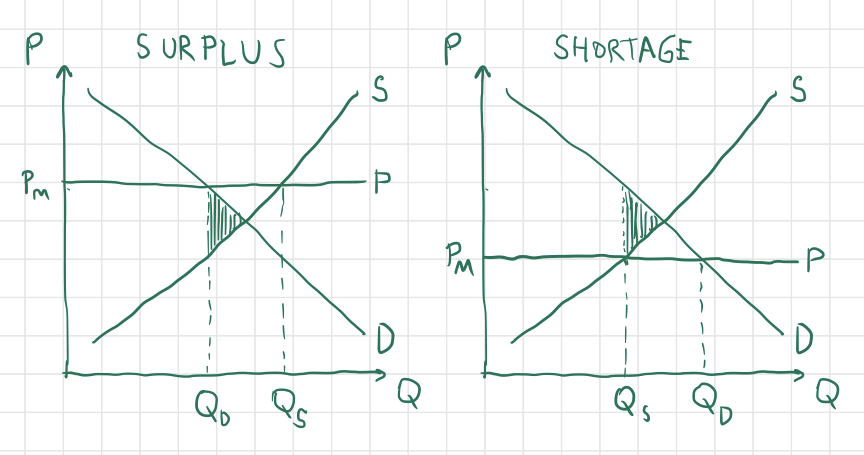 SURPLUS
P
S
P_M
P
D
Q_D
Q_S
Q
SHORTAGE
P
S
P_M
P
D
Q_S
Q_D
Q